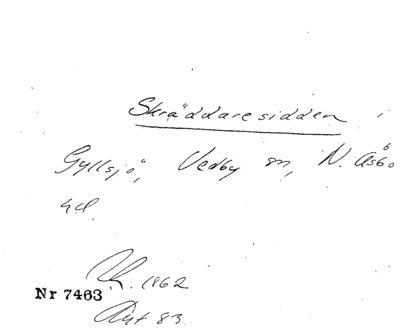 Skräddaresidden i
Gyllsjö, Vedby sn, N. Åsbo
hd.
1862
Nr 7463
83.